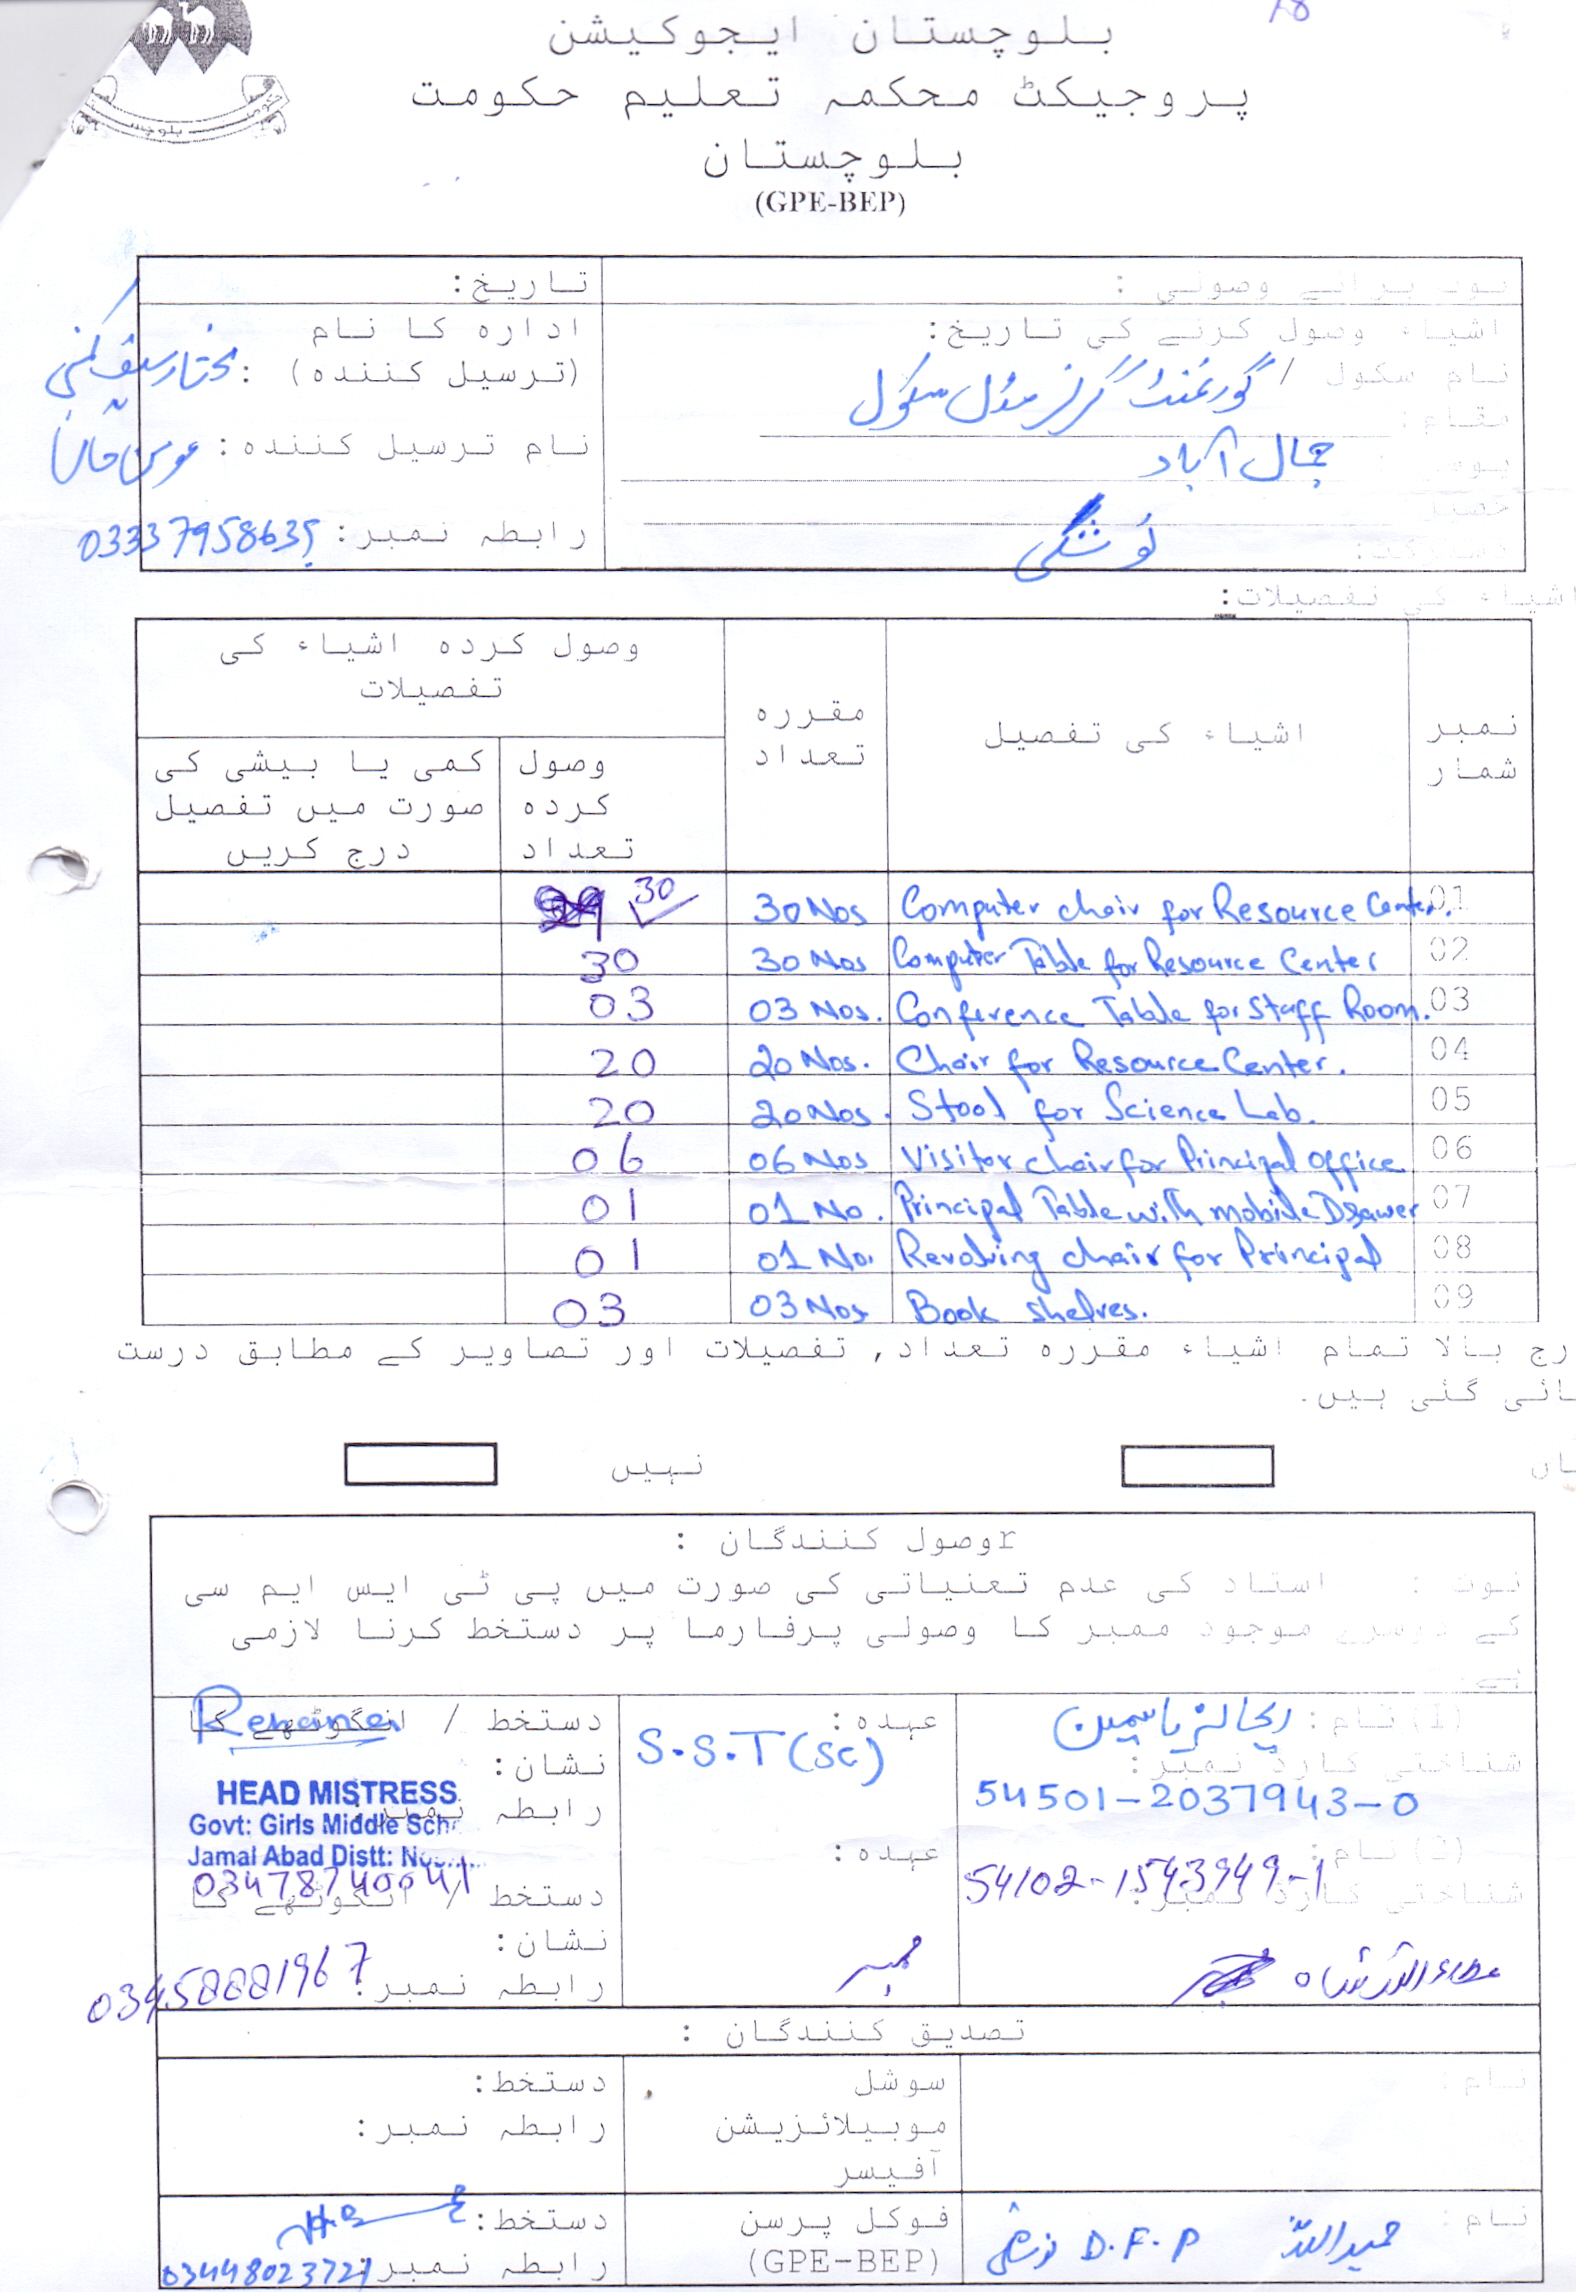 78
بلوچستان ایجوکیشن
پروجیکٹ محکمہ تعلیم حکومت
بلوچستان
(GPE-BEP)
نوٹ برائے وصولی :
تاریخ:
اشیاء وصول کرنے کی تاریخ:
ادارہ کا نام
نام سکول / گورنمنٹ گرلز مڈل سکول
(ترسیل کنندہ) :
مقام:
جمال آباد
نام ترسیل کنندہ:
نوشکی
رابطہ نمبر: 03337958635
اشیاء کی تفصیلات:
نمبر شمار
اشیاء کی تفصیل
مقررہ تعداد
وصول کردہ اشیاء کی تفصیلات
وصول کردہ تعداد
کمی یا بیشی کی صورت میں تفصیل درج کریں
01 Computer chair for Resource Center. 30 Nos 30
02 Computer Table for Resource Center 30 Nos 30
03 Conference Table for Staff Room. 03 Nos. 03
04 Chair for Resource Center. 20 Nos. 20
05 Stool for Science Lab. 20 Nos. 20
06 Visitor chair for Principal office 06 Nos 06
07 Principal Table with mobile Drawer 01 No. 01
08 Revolving chair for Principal 01 No. 01
09 Book shelves. 03 Nos 03
رج بالا تمام اشیاء مقررہ تعداد, تفصیلات اور تصاویر کے مطابق درست
ائی گئی ہیں.
اں
نہیں
rوصول کنندگان :
نوٹ : استاد کی عدم تعنیاتی کی صورت میں پی ٹی ایس ایم سی
کے دوسرے موجود ممبر کا وصولی پرفارما پر دستخط کرنا لازمی
ہے
(1) نام: ریحانہ یاسمین
عہدہ: S.S.T (SC)
دستخط / انگوٹھے کا نشان: Rehana
شناختی کارڈ نمبر: 54501-2037943-0
رابطہ نمبر:
HEAD MISTRESS
Govt: Girls Middle Sch
Jamal Abad Distt: No
03478740041
(2) نام:
شناختی کارڈ نمبر: 54102-1543949-1
عطاء اللہ شاہ
عہدہ: ممبر
دستخط / انگوٹھے کا نشان:
رابطہ نمبر: 03458881967
تصدیق کنندگان :
نام:
سوشل موبیلائزیشن آفیسر
دستخط:
رابطہ نمبر:
نام: حمیداللہ D.F.P نوشکی
فوکل پرسن (GPE-BEP)
دستخط:
رابطہ نمبر: 03448023721